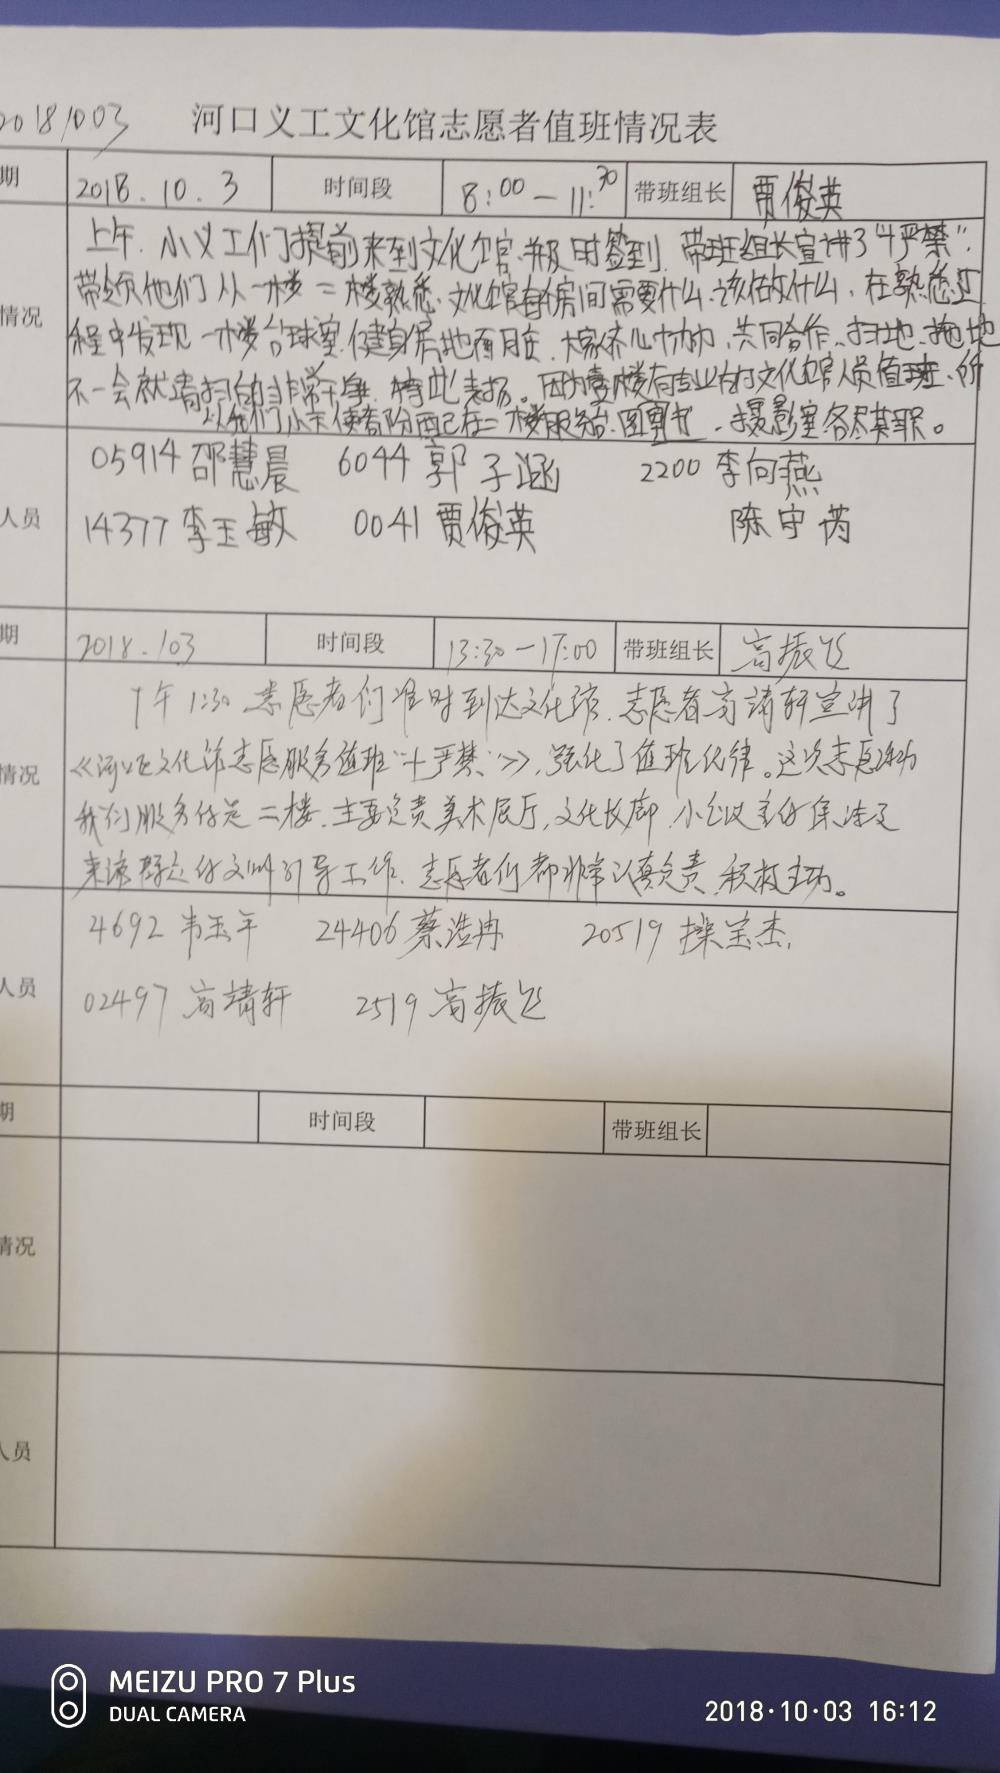 20181003 河口义工文化馆志愿者值班情况表
期 2018.10.3 时间段 8:00-11:30 带班组长 贾俊英
上午.小义工们提前来到文化馆.并及时签到.带班组长宣讲了"十严禁".
情况 带领他们从一楼二楼熟悉.文化馆每个房间需要什么.该做什么.在熟悉过
程中发现一楼台球室.健身房地面脏.大家齐心协力.共同合作.扫地.拖地
不一会就清扫的非常干净.特此表扬。因为壹楼有专业的文化馆人员值班.所
以我们小天使都分配在二楼服务台.图书.摄影室各尽其职。
05914邵慧晨 6044郭子涵 2200李向燕
人员 14377李玉敏 0041贾俊英 陈守芮
期 2018.103 时间段 13:30-17:00 带班组长 高振飞
下午1:30志愿者们准时到达文化馆.志愿者高靖轩宣讲了
情况 《河口区文化馆志愿服务值班"十严禁"》.强化了值班纪律。这次志愿活动
我们服务的是二楼.主要负责美术展厅.文化长廊.小会议室的保洁及
来读群众的文明引导工作.志愿者们都非常认真负责.积极主动。
4692韦玉平 24406蔡浩冉 20519宝杰.
人员 02497高靖轩 2519高振飞
期 时间段 带班组长
情况
人员
MEIZU PRO 7 Plus
DUAL CAMERA
2018·10·03 16:12